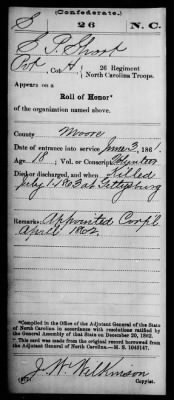 (Confederate.)
S 26 N. C.
S P. Short
Pvt, Co. H, 26 Regiment
North Carolina Troops.
Appears on a
Roll of Honor*
of the organization named above.
County Moore
Date of entrance into service June 3, 1861.
Age 18; Vol. or Conscript Volunteer
Died or discharged, and when Killed
July 1. 1863 at Gettysburg
Remarks: Appointed Corp'l
April 1862
*Compiled in the Office of the Adjutant General of the State
of North Carolina in accordance with resolutions ratified by
the General Assembly of that State on December 20, 1862.
This card was made from the original record borrowed from
the Adjutant General of North Carolina.—M. S. 1043147.
J. W. Wilkinson
Copyist.